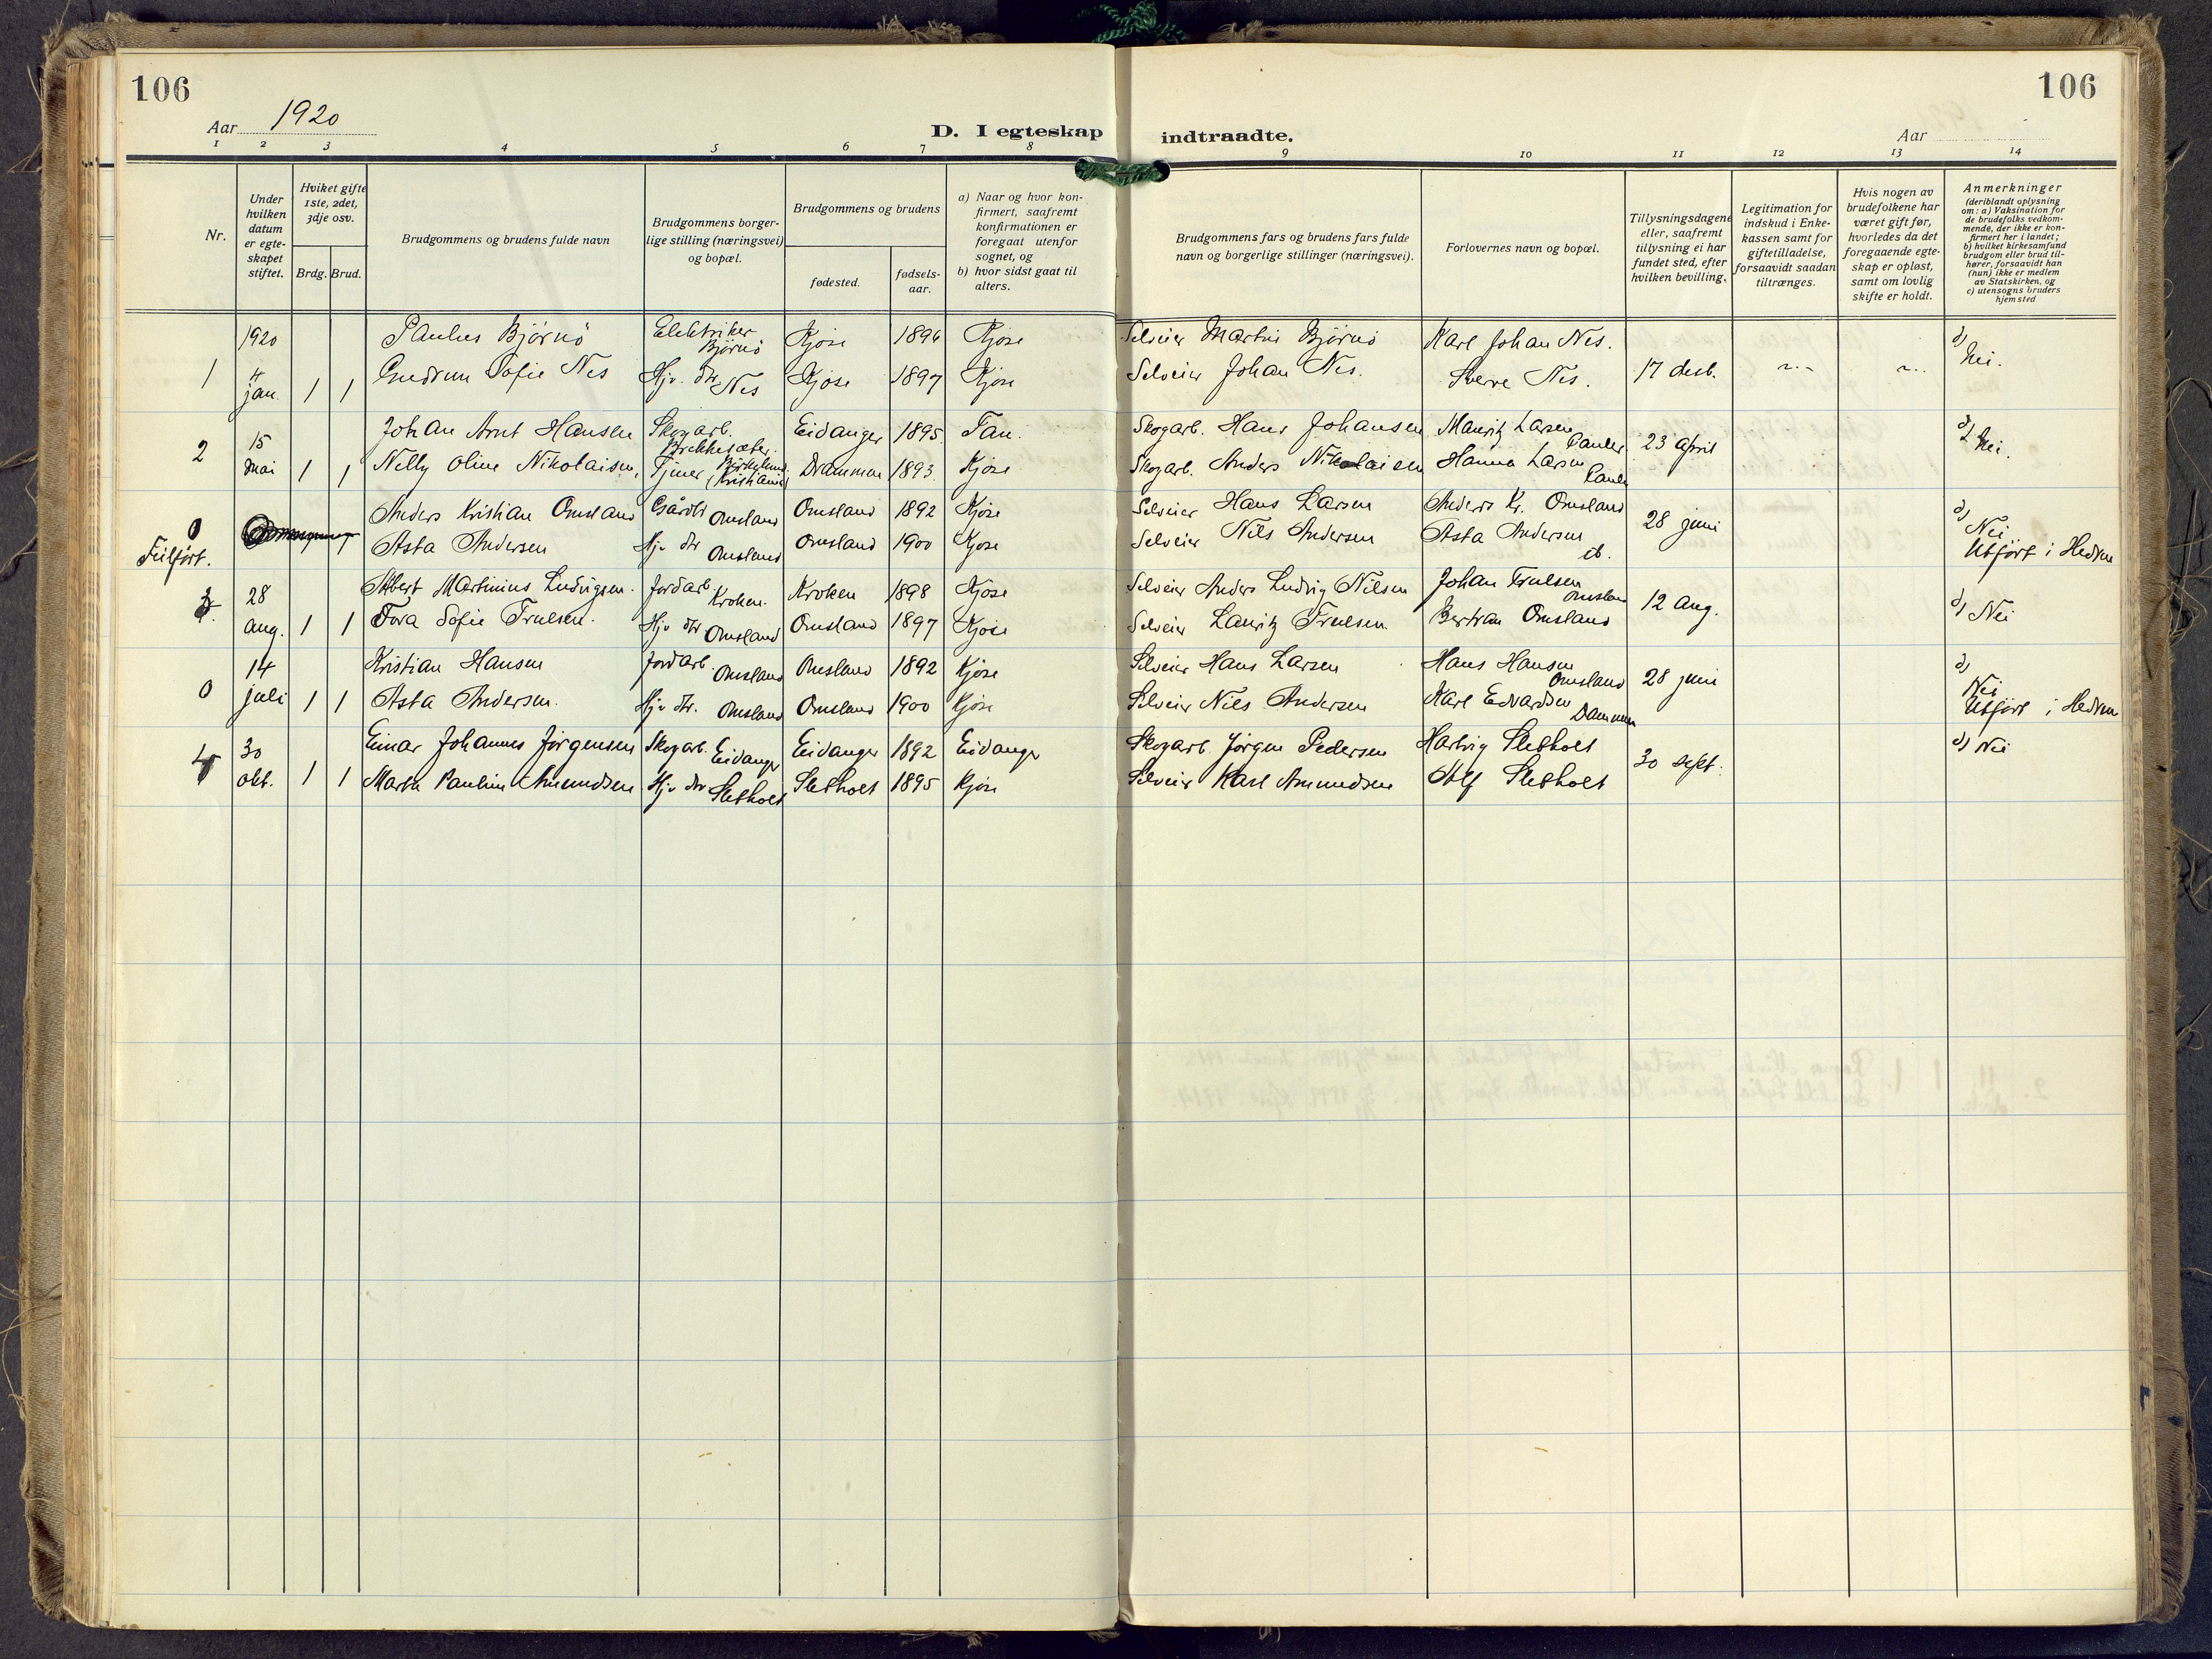 106
106
Aar 1920
D. I egteskap indtraadte.
Aar
1 2 3 4 5 6 7 8 9 10 11 12 13 14
Nr.
Under hvilken datum er egte-skapet stiftet.
Hviket gifte 1ste, 2det, 3dje osv.
Brdg. Brud.
Brudgommens og brudens fulde navn
Brudgommens borger-lige stilling (næringsvei) og bopæl.
Brudgommens og brudens
fødested.
fødsels-aar.
a) Naar og hvor kon-firmert, saafremt konfirmationen er foregaat utenfor sognet, og
b) hvor sidst gaat til alters.
Brudgommens fars og brudens fars fulde navn og borgerlige stillinger (næringsvei).
Forlovernes navn og bopæl.
Tillysningsdagene eller, saafremt tillysning ei har fundet sted, efter hvilken bevilling.
Legitimation for indskud i Enke-kassen samt for giftetilladelse, forsaavidt saadan tiltrænges.
Hvis nogen av brudefolkene har været gift før, hvorledes da det foregaaende egte-skap er opløst, samt om lovlig skifte er holdt.
Anmerkninger
(deriblandt oplysning om: a) Vaksination for de brudefolks vedkom-mende, der ikke er kon-firmert her i landet;
b) hvilket kirkesamfund brudgom eller brud til-hører, forsaavidt han (hun) ikke er medlem av Statskirken, og
c) utensogns bruders hjemsted
1920 Paulus Bjørnö Elektriker Bjørnö Kjose 1896 Kjose Selveier Martin Bjørnö Karl Johan Nes. d)
1 4 jan. 1 1 Gudrun Sofie Nes Hjv. dtr Nes Kjose 1897 Kjose Selveier Johan Nes. Sverre Nes. 17 desb. Nei.
2 15 Johan Arnt Hansen Skogarb. Eidanger 1895. Tan. Skogarb. Hans Johansen Mauritz Larsen Pauler 23 april d)
mai 1 1 Nelly Oline Nikolaisen, Tjener (Kristiania) Drammen 1893. Kjose Skogarb. Anders Nikolaisen Hanna Larsen Pauler Nei.
0 Anders Kristian Omsland Gårdbr Omsland Omsland 1892 Kjose Selveier Hans Larsen Anders Kr. Omsland 28 juni d)
Feilført. Asta Andersen Hjv dtr Omsland Omsland 1900 Kjose Selveier Nils Andersen Asta Andersen ib. Nei Utført i Hedrum
3 28 Albert Martinius Ludvigsen. Jordarb. Kroken. Kroken 1898 Kjose Selveier Anders Ludvig Nilsen Johan Trulsen Omsland 12 aug. d) Nei
aug. 1 1 Tora Sofie Trulsen. Hjv dtr Omsland Omsland 1897 Kjose Selveier Lauritz Trulsen. Bertran Omsland
14 Kristian Hansen Jordarb. Omsland Omsland 1892 Kjose Selveier Hans Larsen Hans Hansen Omsland 28 juni d)
0 juli 1 1 Asta Andersen. Hjv dtr. Omsland Omsland 1900 Kjose Selveier Nils Andersen Karl Edvardsen Dammen Nei Utført i Hedrum
4 30 Einar Johannes Jørgensen Skogarb. Eidanger Eidanger 1892 Eidanger Skogarb. Jørgen Pedersen Hartvig Sletholt 30 sept. d) Nei
okt. 1 1 Marta Pauline Amundsen Hjv dtr Sletholt Sletholt 1895 Kjose Selveier Karl Amundsen Alf Sletholt